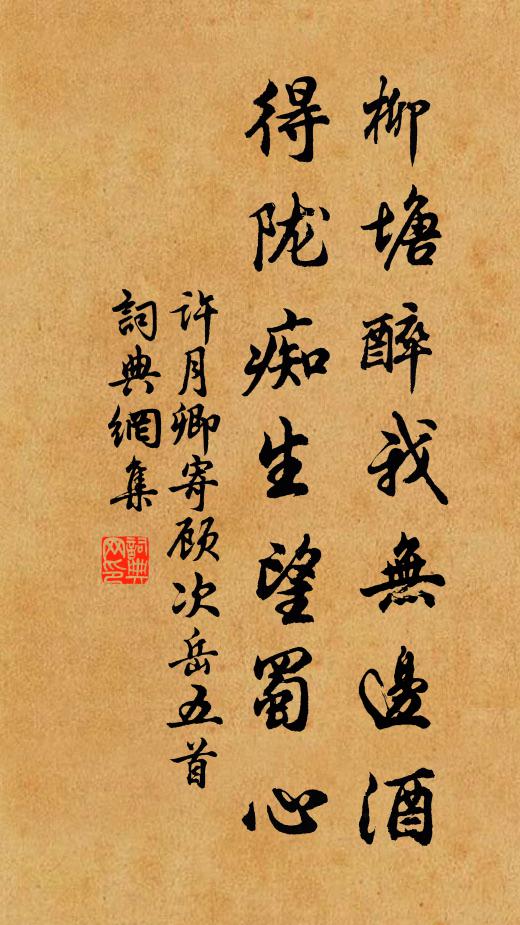 柳塘醉我無邊酒
得陇痴生望蜀心
許月卿寄顾次岳五首
詞典網集
詞典网印